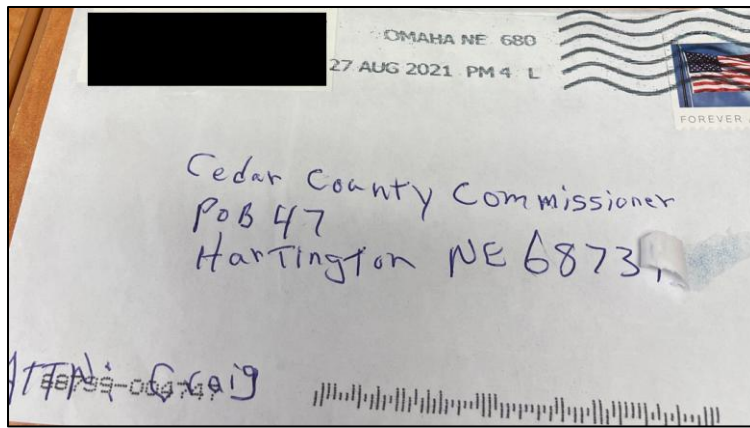 OMAHA NE 680
27 AUG 2021 PM 4 L
FOREVER
Cedar County Commissioner
POB 47
Hartington NE 6873
ATTN: Craig